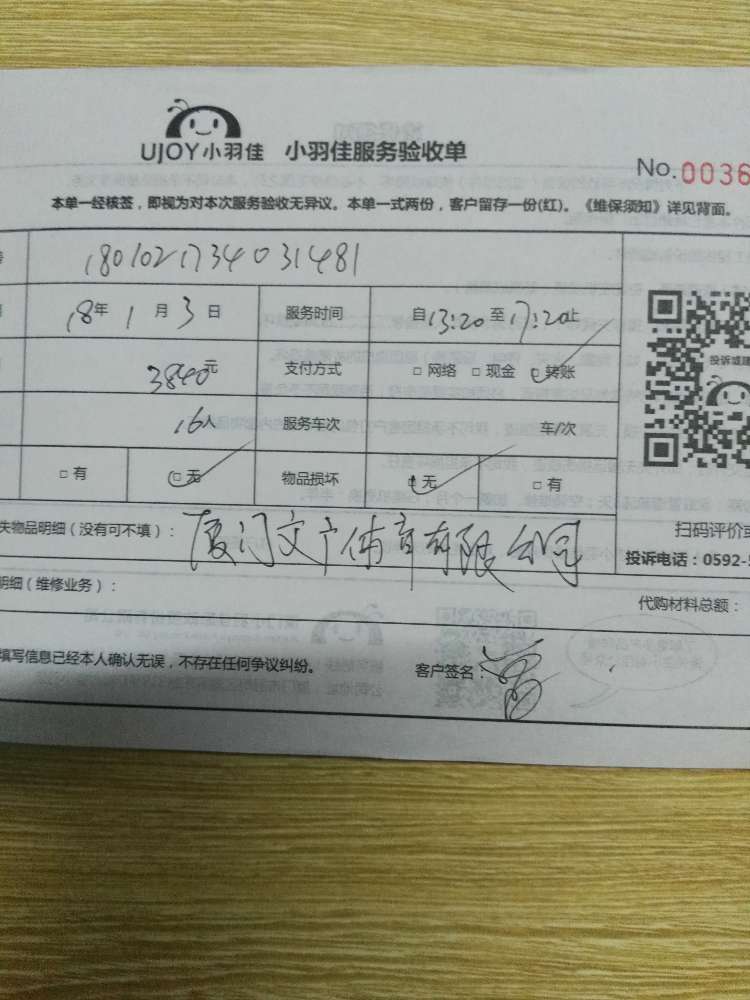 UJOY小羽佳 小羽佳服务验收单
No.0036
本单一经核签，即视为对本次服务验收无异议。本单一式两份，客户留存一份(红)。《维保须知》详见背面。
1801021734031481
18年1月3日 服务时间 自13:20至17:20止
3840元 支付方式 □网络 □现金 □转账
16人 服务车次 车/次
□有 □无 物品损坏 □无 □有
投诉或建
失物品明细（没有可不填）： 厦门文广体育有限公司
扫码评价或
投诉电话：0592-5
明细（维修业务）：
代购材料总额：
填写信息已经本人确认无误，不存在任何争议纠纷。 客户签名：